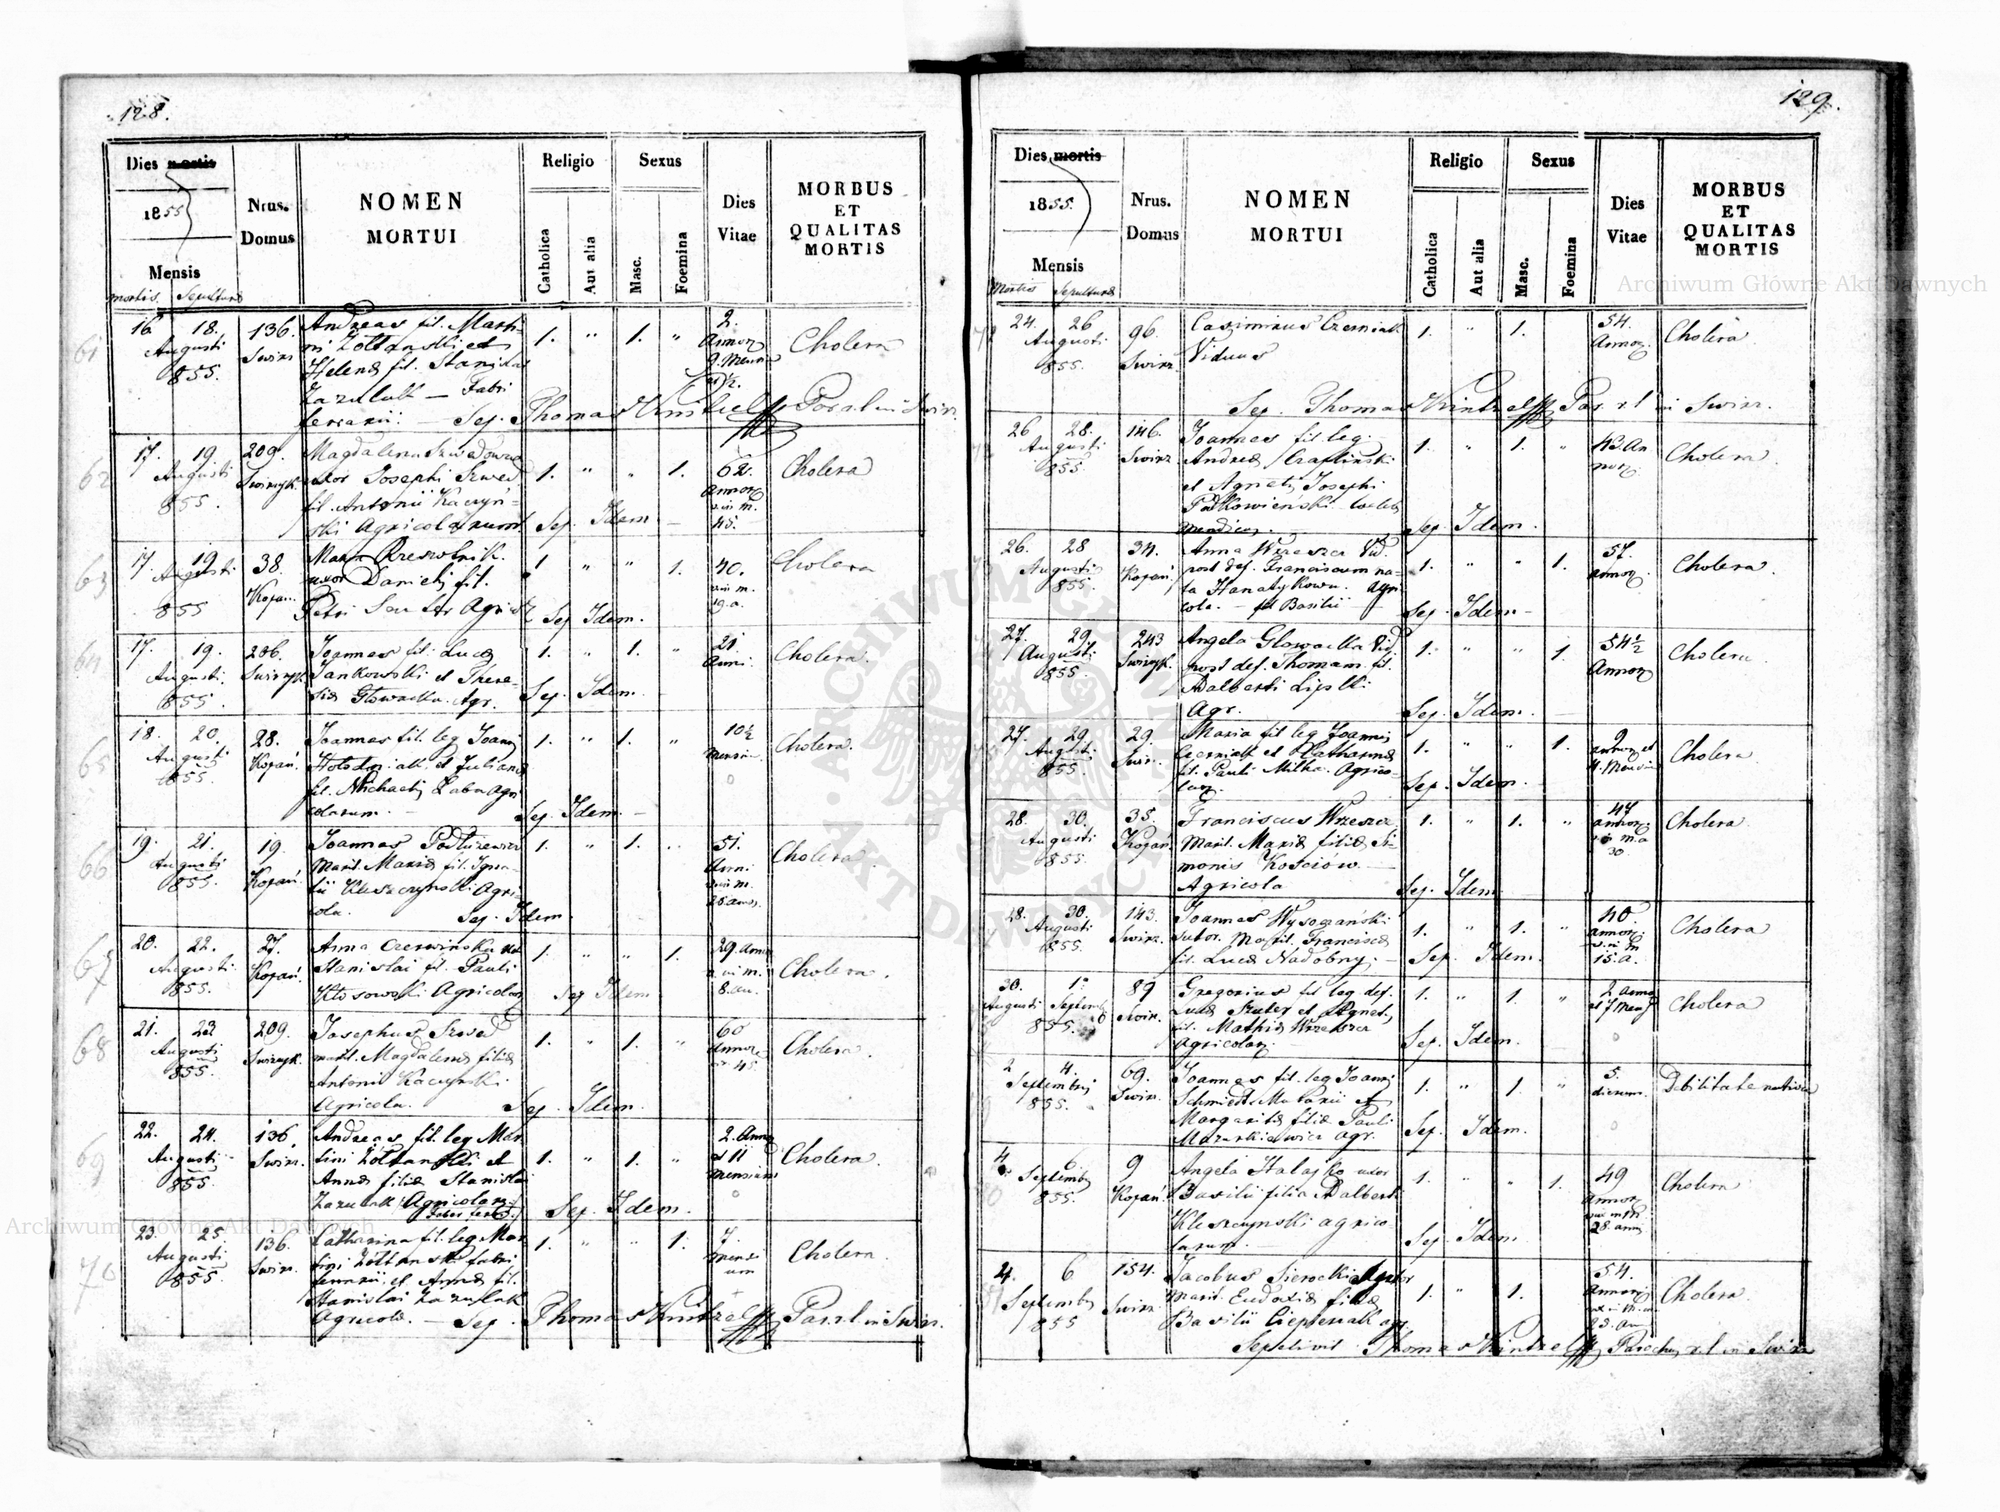 128.
Dies mortis
1855
Mensis
mortis. Sepulturæ
Nrus. Domus
NOMEN MORTUI
Religio
Catholica
Aut alia
Sexus
Masc.
Foemina
Dies Vitae
MORBUS ET QUALITAS MORTIS
61
16. 18. Augusti 855.
136. Swirz
Andreas fil. Marti-
ni Żółtanski et
Helenæ fil. Stanislai
Zazulak — Fabri
ferrarii. — Sep. Thomas Kintzel Par. r.l. in Swirz.
1. " 1. "
2. Annor. 9. Mens.
Cholera
62
17. 19. Augusti 855.
209. Swirzyk.
Magdalena Szwedowa
uxor Josephi Szwed
fil. Antonii Kaczyń-
ski Agricolarum
Sep. Idem —
1. " " 1.
62. Annor. vix. in m. 45.
Cholera
63
17. 19. Augusti 855
38. Kopań.
uxor Danielis fil.
Petri
Sep. Idem.
1 " " 1.
40. vix. in m. 19. a.
Cholera
64
17. 19. Augusti 855.
206. Swirzyk.
Joannes fil. Lucæ
Jankowski et There-
siæ Głowacka. Agr.
Sep. Idem.
1. " 1. "
21. Anni.
Cholera.
65
18. 20. Augusti 855.
28. Kopań.
Joannes fil. leg. Joannis
et Julianæ
fil. Michaelis Łaba Agri-
colarum. —
Sep. Idem. —
1. " 1. "
10½ mensium
Cholera.
66
19. 21. Augusti 855.
19. Kopań.
Joannes Podłużewicz
Marit. Mariæ fil. Igna-
tii Kleszczynski Agri-
cola. Sep. Idem.
1. " 1. "
51. Anni vix. in m. 25 annos.
Cholera.
67
20. 22. Augusti 855.
27. Kopań.
Anna Czerwińska ux.
Stanislai fil. Pauli
Kłosowski Agricolar.
Sep. Idem
1. " " 1.
29 Annor. vix. in m. 8. an.
Cholera.
68
21. 23 Augusti 855.
209. Swirzyk.
Josephus Szwed
marit. Magdalenæ filiæ
Antonii Kaczynski
Agricola.
Sep. Idem.
1. " 1. "
60 Annor. 45.
Cholera.
69
22. 24. Augusti 855.
136. Swirz.
Andreas fil. leg. Mar-
tini Żółtanski et
Annæ filiæ Stanislai
Zazulak (Agricolar.
Faber ferr.)
Sep. Idem.
1. " 1. "
2. Annor. et 11 mensium
Cholera.
70
23. 25. Augusti 855.
136. Swirz.
Catharina fil. leg. Mar-
tini Żółtanski fabri
ferrarii, et Annæ fil.
Stanislai Zazulak
Agricolæ. — Sep. Thomas Kintzel Par. r.l. in Swirz.
1. " " 1.
7. mensium
Cholera.
129.
Dies mortis
1855.
Mensis
Mortis Sepulturæ
Nrus. Domus
NOMEN MORTUI
Religio
Catholica
Aut alia
Sexus
Masc.
Foemina
Dies Vitae
MORBUS ET QUALITAS MORTIS
24. 26 Augusti 855.
96. Swirz
Casimirus Czerniak
Viduus
Sep. Thomas Kintzel Par. r.l. in Swirz.
1. " 1.
54. Annor.
Cholera
26 28. Augusti 855
146. Swirz.
Joannes fil. leg.
Andreæ Czaplinski
et Agnetis Josephi
Sep. Idem.
1. " 1. "
43. Annor.
Cholera
26. 28 Augusti 855.
34. Kopań.
Anna Wrzeszcz Vid.
post def. Franciscum na-
ta Hanatykowa. Agri-
cola. — fil. Basilii —
Sep. Idem —
1. " " 1.
57. annor.
Cholera.
27. 29. Augusti 855.
243 Swirzyk.
Angela Głowacka Vid.
post def. Thomam. fil.
Adalberti Lipski
Agr.
Sep. Idem.
1. " " 1.
54½ Annor.
Cholera
27. 29. Augusti 855.
29. Swir.
Maria fil. leg. Joannis
Czerniak et Catharinæ
fil. Pauli Milka. Agrico-
lar.
Sep. Idem.
1. " " 1.
9 annor. et 4. Mensium
Cholera
28. 30. Augusti 855.
35. Kopań.
Franciscus Wrzeszcz
Marit. Mariæ filiæ Si-
monis Kościów —
Agricola
Sep. Idem
1. " 1. "
47 annor. vix. in m. a 30.
Cholera
28. 30. Augusti 855.
143. Swirz.
Joannes Wysoczański
sutor. Marit. Franciscæ
fil. Lucæ Nadobny. —
Sep. Idem.
1. " 1. "
40. annor. vix. in m. 15. a.
Cholera
30. Augusti 1. Septemb. 855.
89 Swir.
Gregorius fil. leg. def.
Lucæ Szuter et Agnetis
fil. Mathiæ Wrzeszcz
Agricolar. —
Sep. Idem.
1. " 1. "
2. annor. et 7 Mens.
Cholera
2 4. Septembris 855.
69. Swirz.
Joannes fil. leg. Joannis
Schmiedt Molarii et
Margaritæ filiæ Pauli
Mazurkiewicz agr.
Sep. Idem.
1. " 1. "
5. dierum.
Debilitate nativa
80
4. 6 Septembr. 855.
9 Kopań.
Angela Halajko uxor
Basilii filia Adalberti
Kleszczynski agrico-
larum. —
Sep. Idem
1. " " 1.
49 Annor. vix. in m. 28 annis
Cholera
4. 6 Septembr. 855
154. Swirz.
Jacobus Sierocki Sartor
Marit. Eudoxiæ filiæ
Basilii Ciepieniak agr.
1. " 1.
54. Annor. vix. in m. 23. an.
Cholera.
Sepelivit Thomas Kintzel Parochus r.l. in Swirz
Archiwum Główne Akt Dawnych
Archiwum Główne Akt Dawnych
· ARCHIWUM GŁÓWNE · AKT DAWNYCH